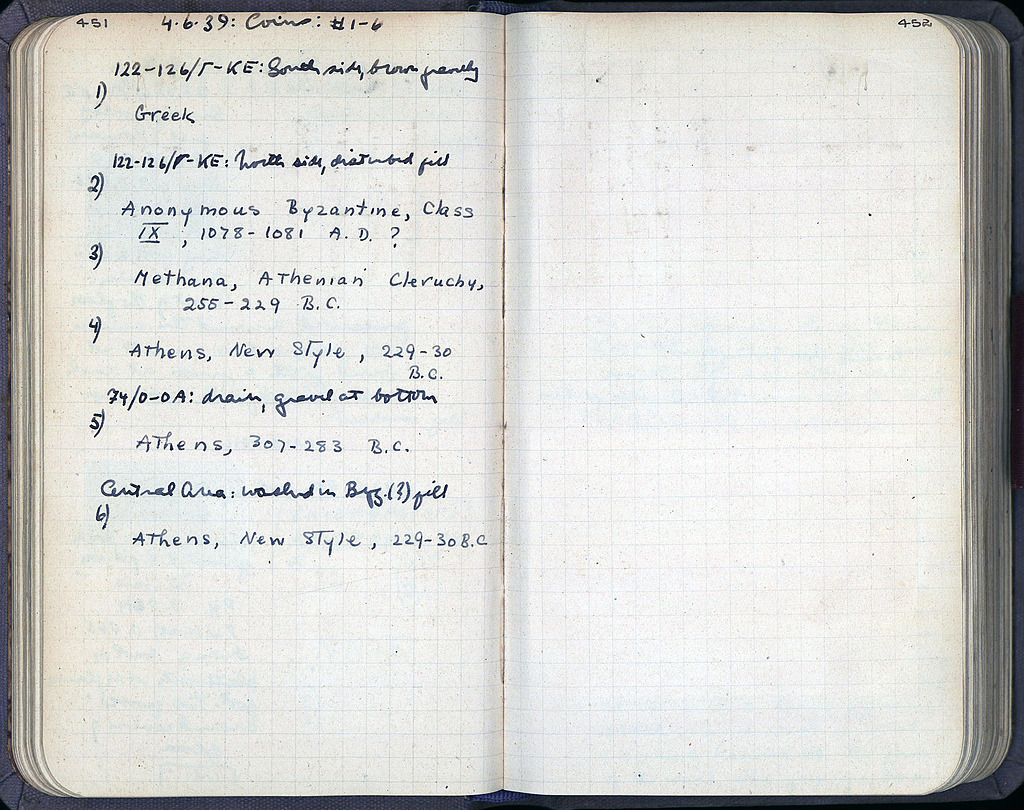 451
4.6.39: Coins: #1-6
122-126/Γ-KE: South side, brown gravelly
1)
Greek
122-126/Γ-KE: North side, disturbed fill
2)
Anonymous Byzantine, Class
IX, 1078-1081 A.D. ?
3)
Methana, Athenian Cleruchy,
255-229 B.C.
4)
Athens, New Style, 229-30
B.C.
74/O-OA: drain, gravel at bottom
5)
Athens, 307-283 B.C.
Central Area: washed in Byz.(?) fill
6)
Athens, New Style, 229-30 B.C
452